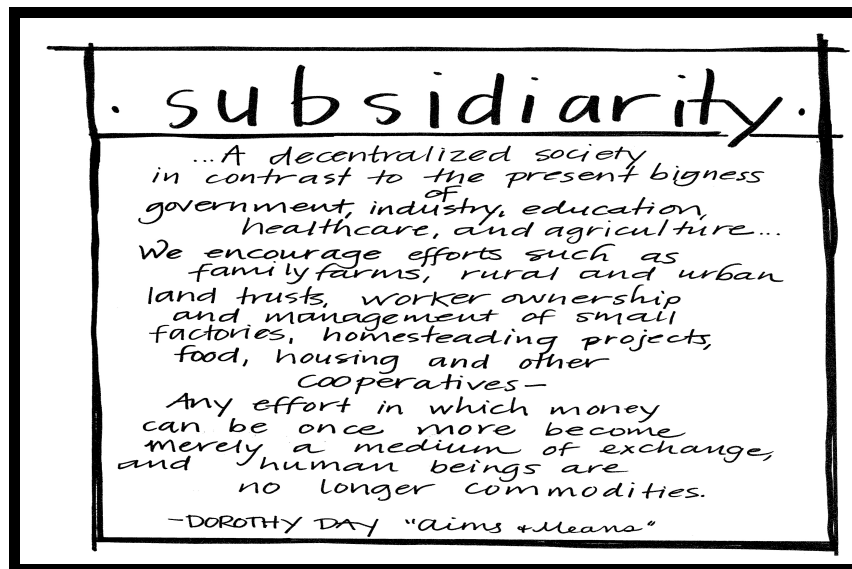 · subsidiarity ·
...A decentralized society
in contrast to the present bigness
of
government, industry, education,
healthcare, and agriculture...
We encourage efforts such as
family farms, rural and urban
land trusts, worker ownership
and management of small
factories, homesteading projects,
food, housing and other
cooperatives—
Any effort in which money
can be once more become
merely a medium of exchange,
and human beings are
no longer commodities.
-DOROTHY DAY "Aims & Means"